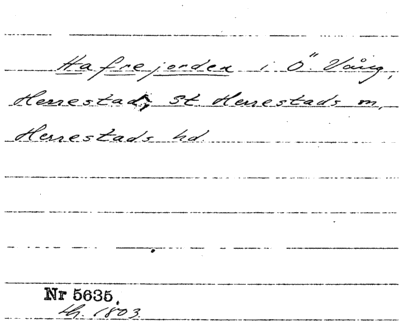 Hafrejorden i Ö. Vång,
Herrestad, St Herrestads sn,
Herrestads hd
Nr 5635.
Lh. 1803